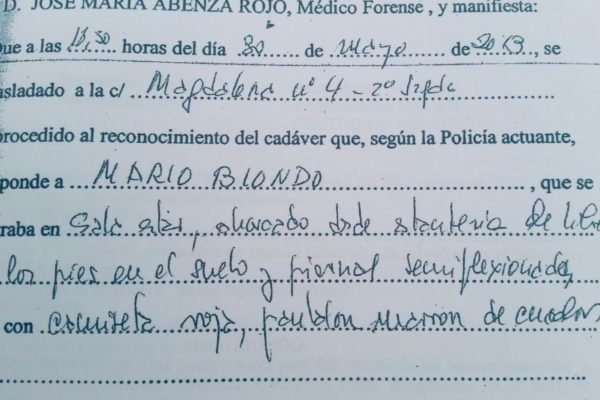 D. JOSE MARIA ABENZA ROJO, Médico Forense , y manifiesta:
ue a las 18,30 horas del día 30 de Mayo de 2013, se
sladado a la c/ Magdalena nº 4 - 2º Izqda
procedido al reconocimiento del cadáver que, según la Policía actuante,
ponde a MARIO BIONDO , que se
raba en Sala estar, ahorcado desde estanteria de lib
los pies en el suelo y piernas semiflexionadas,
con camiseta roja, pantalon marron de cuadros